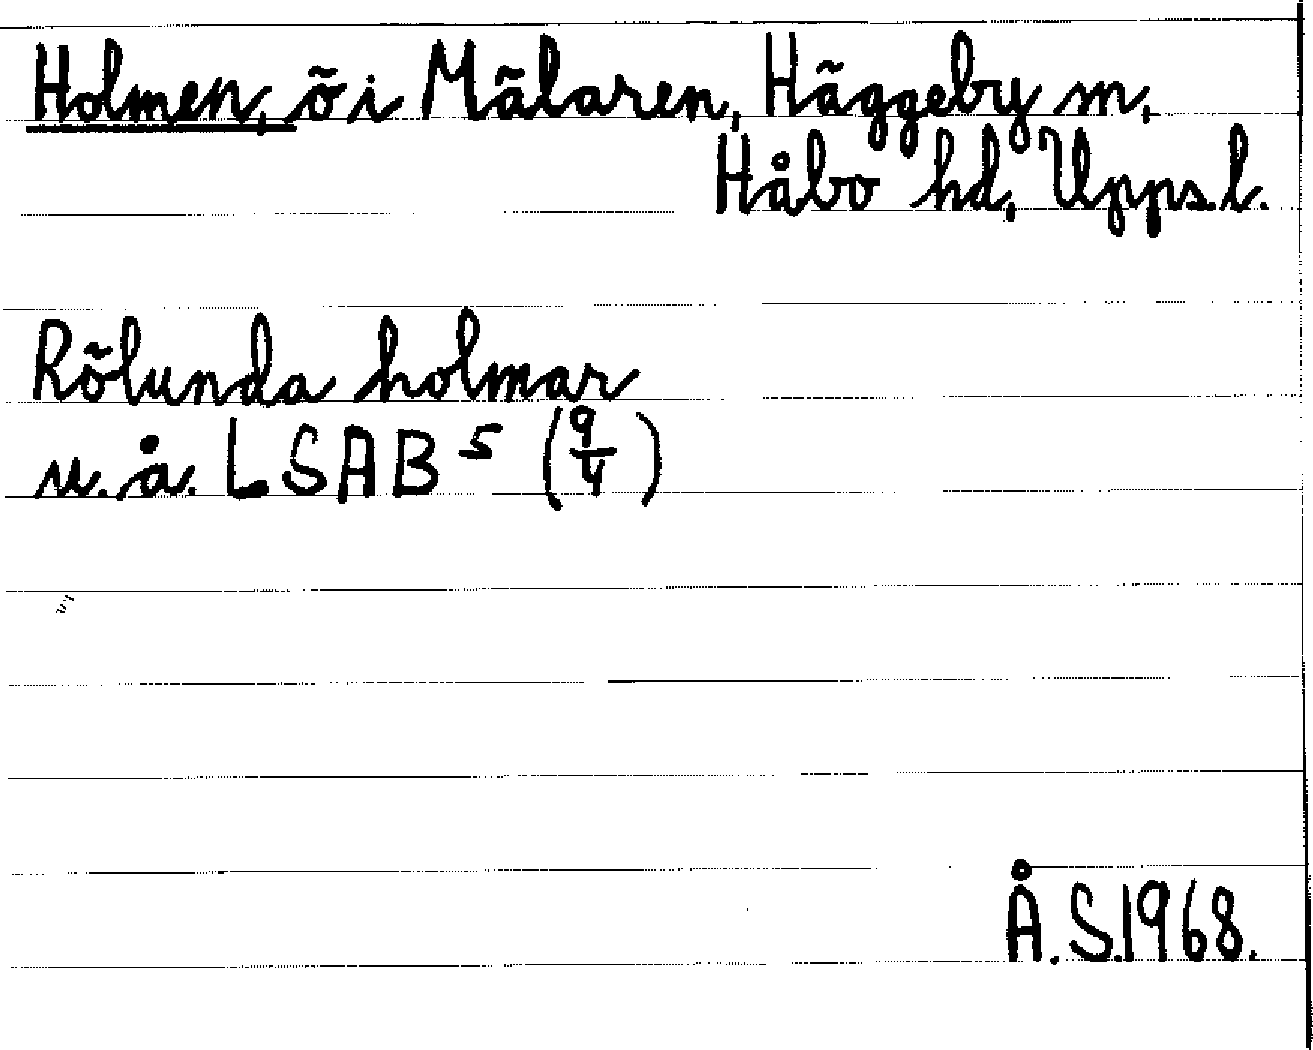 Holmen, ö i Mälaren, Häggeby m,
Håbo hd, Upps. l.
Rölunda holmar
u. å. LSAB 5 (9/4)
Å. S. 1968.